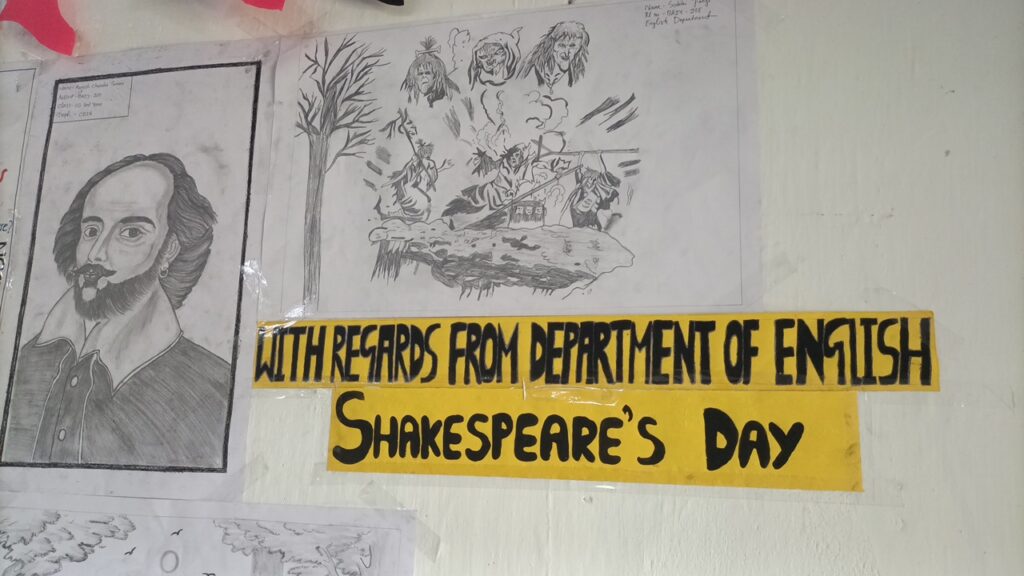 English Department
WITH REGARDS FROM DEPARTMENT OF ENGLISH
SHAKESPEARE'S DAY